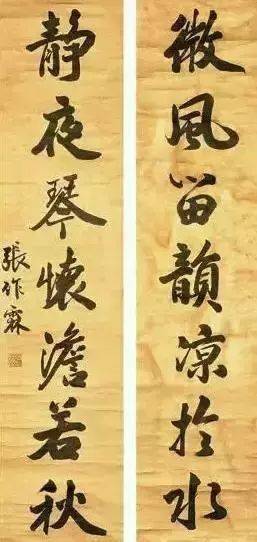 微風留韻凉於水
靜夜琴懷澹若秋
張作霖